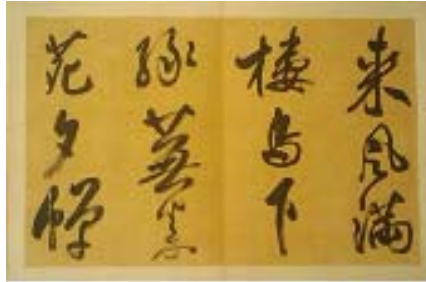 來風滿
樓鳥下
綠蕪秦
苑夕蟬